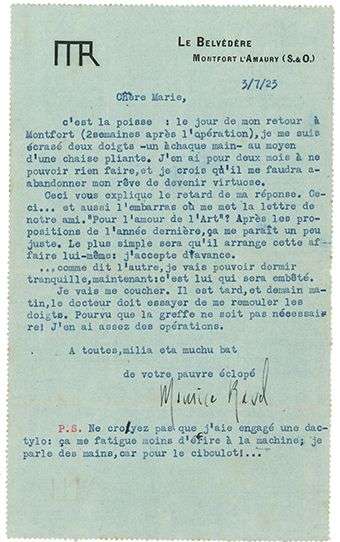 MR
LE BELVÉDÈRE
MONTFORT L'AMAURY (S.&O.)
3/7/23
Chère Marie,
c'est la poisse : le jour de mon retour à
Montfort (2semaines après l'opération),je me suis
écrasé deux doigts -un àchaque main- au moyen
d'une chaise pliante. J'en ai pour deux mois à ne
pouvoir rien faire,et je crois qu'il me faudra a-
abandonner mon rêve de devenir virtuose.
Ceci vous explique le retard de ma réponse. Ce-
ci... et aussi l'embarras où me met la lettre de
notre ami."Pour l'amour de l'Art"? Après les pro-
positions de l'année dernière,ça me paraît un peu
juste. Le plus simple sera qu'il arrange cette af-
faire lui-même: j'accepte d'avance.
...comme dit l'autre, je vais pouvoir dormir
tranquille,maintenant:c'est lui qui sera embêté.
Je vais me coucher. Il est tard, et demain ma-
tin,le docteur doit essayer de me remouler les
doigts. Pourvu que la greffe ne soit pas nécessai-
re! J'en ai assez des opérations.
A toutes,milia eta muchu bat
de votre pauvre éclopé
Maurice Ravel
P.S. Ne croyez pas que j'aie engagé une dac-
tylo: ça me fatigue moins d'écrire à la machine; je
parle des mains,car pour le ciboulot!...